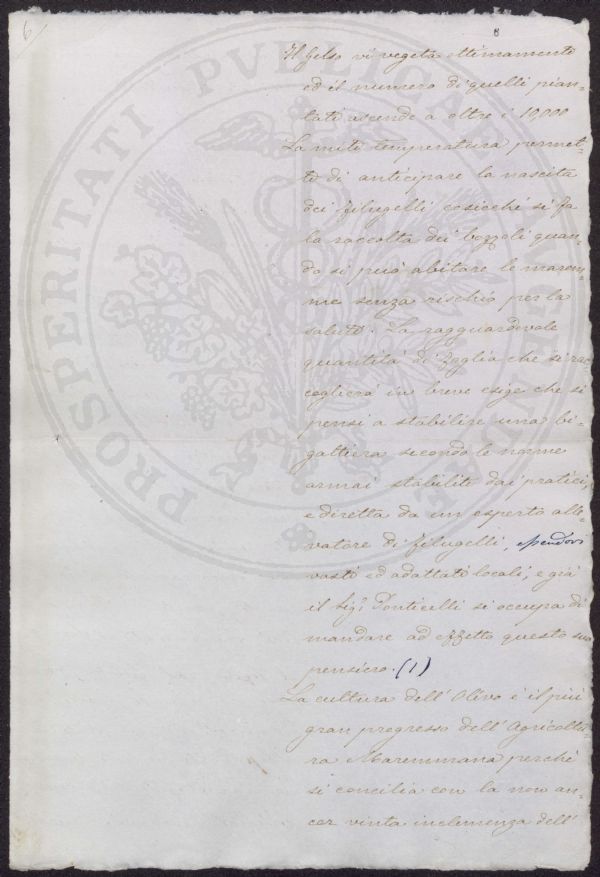 6
8
Il gelso vi vegeta ottimamente
ed il numero di quelli pian-
tati ascende a oltre i 10,000
La mite temperatura permet-
te di anticipare la nascita
dei filugelli cosicchè si fa
la raccolta dei bozzoli quan-
do si può abitare le marem-
me senza rischio per la
salute. La ragguardevole
quantità di foglia che si rac-
coglierà in breve esige che si
pensi a stabilire una bi-
gattiera secondo le norme
armai stabilite dai pratici,
e diretta da un esperto alle-
vatore di filugelli, essendovi
vasti ed adattati locali, e già
il Sigr Ponticelli si occupa di
mandare ad effetto questo suo
pensiero. (1)
La cultura dell'Olivo è il più
gran progresso dell'Agricoltu-
ra Maremmana perchè
si concilia con la non an-
cor vinta inclemenza dell'
PROSPERITATI PVBLICAE AVGENDAE